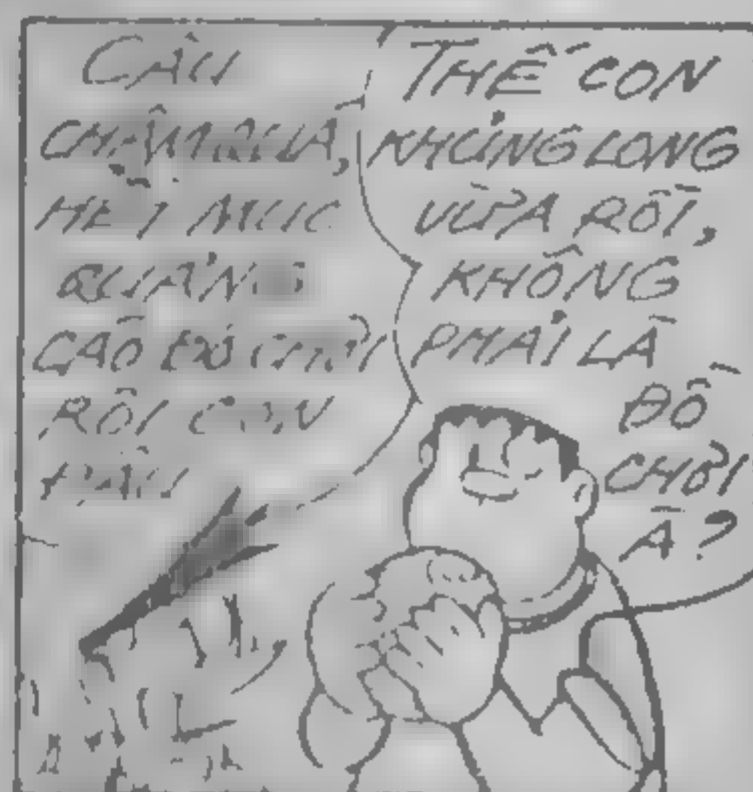 CẬU
CHẬM QUÁ,
HẾT MỤC
QUẢNG
CÁO ĐỒ CHƠI
RỒI CÒN
ĐÂU
THẾ CON
KHỦNG LONG
VỪA RỒI,
KHÔNG
PHẢI LÀ
ĐỒ
CHƠI
À?